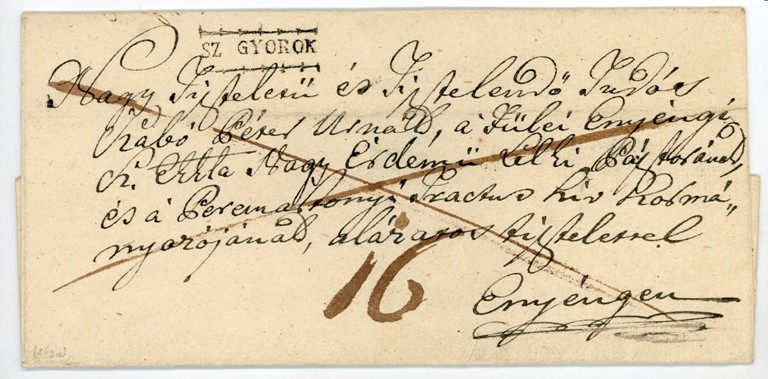 SZ GYOROK
Nagy Tiszteletü és Tisztelendő Tudós
Szabó Péter Urnak, a Fülei Enyéngi
Sz. Ekla Nagy Érdemü Lelki Pásztorának,
és a Peremartonyi Tractus hiv Kormá„
nyozójának, alázatos tisztelettel
16
Enyéngen